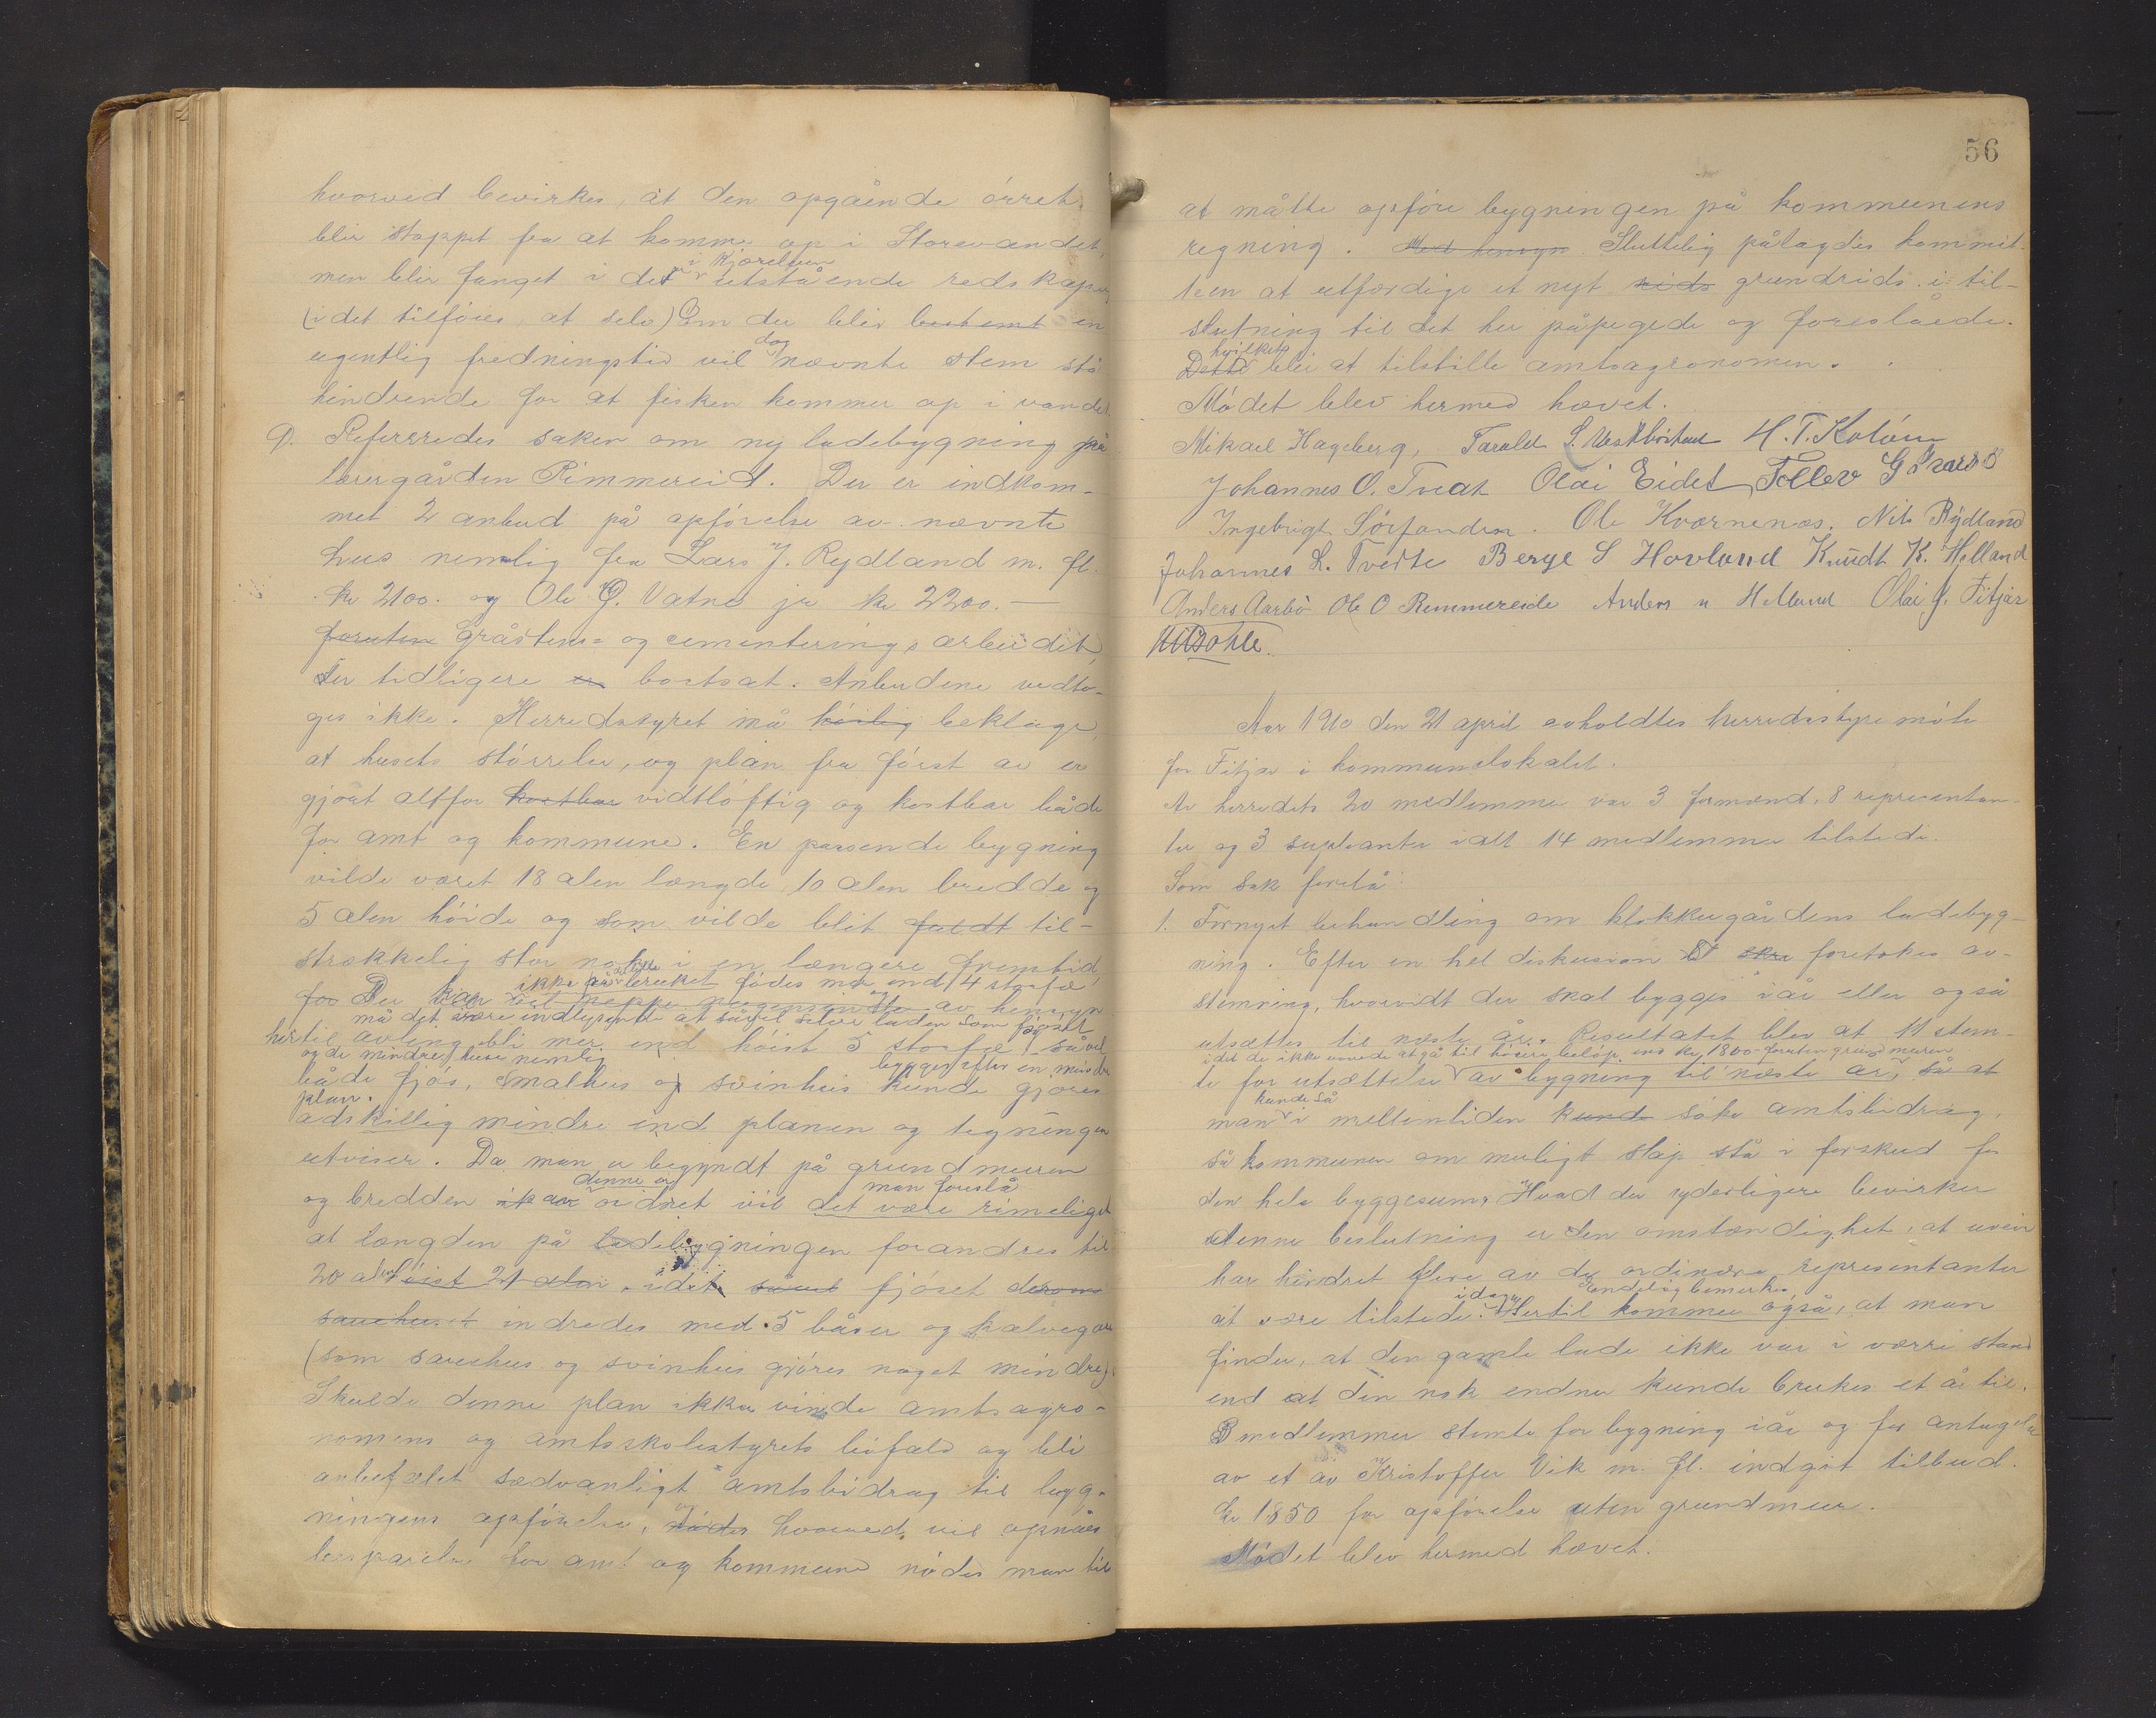 hvorved bevirkes, at den opgående örret
blir stoppet fra at komme op i Storevandet,
i Kjærelven
men blir fanget i de utstående redskaper
(i det tilföies, at selv) Om der blir bestemt en
dog
egentlig fredningstid vil nævnte stem stå
hindrende for at fisken kommer op i vandet.
9. Refereredes saken om ny ladebygning på
lærergården Rimmereid. Der er indkom-
met 2 anbud på opförelse av nævnte
hus nemlig fra Lars J. Rydland m. fl.
kr 2100. og Ole O. Vatne jr kr 2200.—
foruten gråstens- og cementerings arbeidet,
der tidligere er bortsat. Anbudene vedto-
ges ikke. Herredsstyret må höilig beklage,
at husets störrelse, og plan fra först av er
gjort altfor kostbar vidtlöftig og kostbar både
for amt og kommune. En passende bygning
vilde været 18 alen længde, 10 alen bredde og
5 alen höide og som vilde blit fuldt til-
strækkelig stor nok i en længere fremtid
ikke på bruket födes mer end 4 storfæ
for Der kan
må det være indlysende at såvel selve laden som fjöset
hertil avling bli mer end höist 5 storfæ såvel
og de mindre huse nemlig bygges efter en mindre
både fjös, smalhus og svinhus kunde gjöres
plan.
adskillig mindre end planen og tegningen
utviser. Da man er begyndt på grundmuren
denne og man foreslå
og bredden ikke ændret vil det være rimeligst
at længden på ladebygningen forandres til
20 alen höist 21 alen, idet såvel fjöset dersom
sauehuset indredes med 5 båser og kalvegar
(som sauehus og svinhus gjöres noget mindre).
Skulde denne plan ikke vinde amtsagro-
nomens og amtsskolestyrets bifald og bli
anbefalet sædvanligt amtsbidrag til byg-
ningens opförelse, nödes hvorved vil opnåes
besparelse for amt og kommune nödes man til
56
at måtte opföre bygningen på kommunens
regning. Med hensyn Sluttelig pålagdes kommit-
teen at utfærdige et nyt rids grundrids i til-
slutning til det her påpegede og foreslåede.
hvilket
Dette blir at tilstille amtsagronomen.
Mödet blev hermed hævet.
Mikael Hageberg, Tarald S. Vestböstad H. T. Kolöen
Johannes O. Tveit Olai Eidet Tollev G
Ingebrigt Sörfonden. Ole Kværnenæs. Nils Rydland
Johannes L. Tveite Berge S Hovland Knudt K. Helland
Anders Aarbö Ole O Rimmereide Anders N Helland Olai J. Fitjar
Aar 1910 den 21 april avholdtes herredsstyremöte
for Fitjar i kommunelokalet.
Av herredets 20 medlemmer var 3 formænd, 8 representan-
ter og 3 supleanter ialt 14 medlemmer tilstede.
Som sak forelå:
1. Fornyet behandling om klokkergårdens ladebyg-
ning. Efter en hel diskussion skr foretokes av-
stemning, hvorvidt der skal bygges iår eller også
utsættes til næste år. Resultatet blev at 11 stem-
idet de ikke vovede at gå til höiere belöp end kr 1800 foruten grundmuren
te for utsættelse av bygning til næste år, så at
kunde så
man i mellemtiden kunde söke amtsbidrag,
så kommunen om muligt slap stå i forskud for
den hele byggesum. Hvad der yderligere bevirker
denne beslutning er den omstændighet, at uveir
har hindret flere av de ordinære representanter
i dag Endelig bemerkes
at være tilstede. Hertil kommer også, at man
finder, at den gamle lade ikke var i værre stand
end at den nok endnu kunde brukes et år til.
3 medlemmer stemte for bygning iår og for antagelse
av et av Kristoffer Vik m. fl. indgit tilbud.
kr 1850 for opförelse uten grundmur.
Mödet blev hermed hævet.